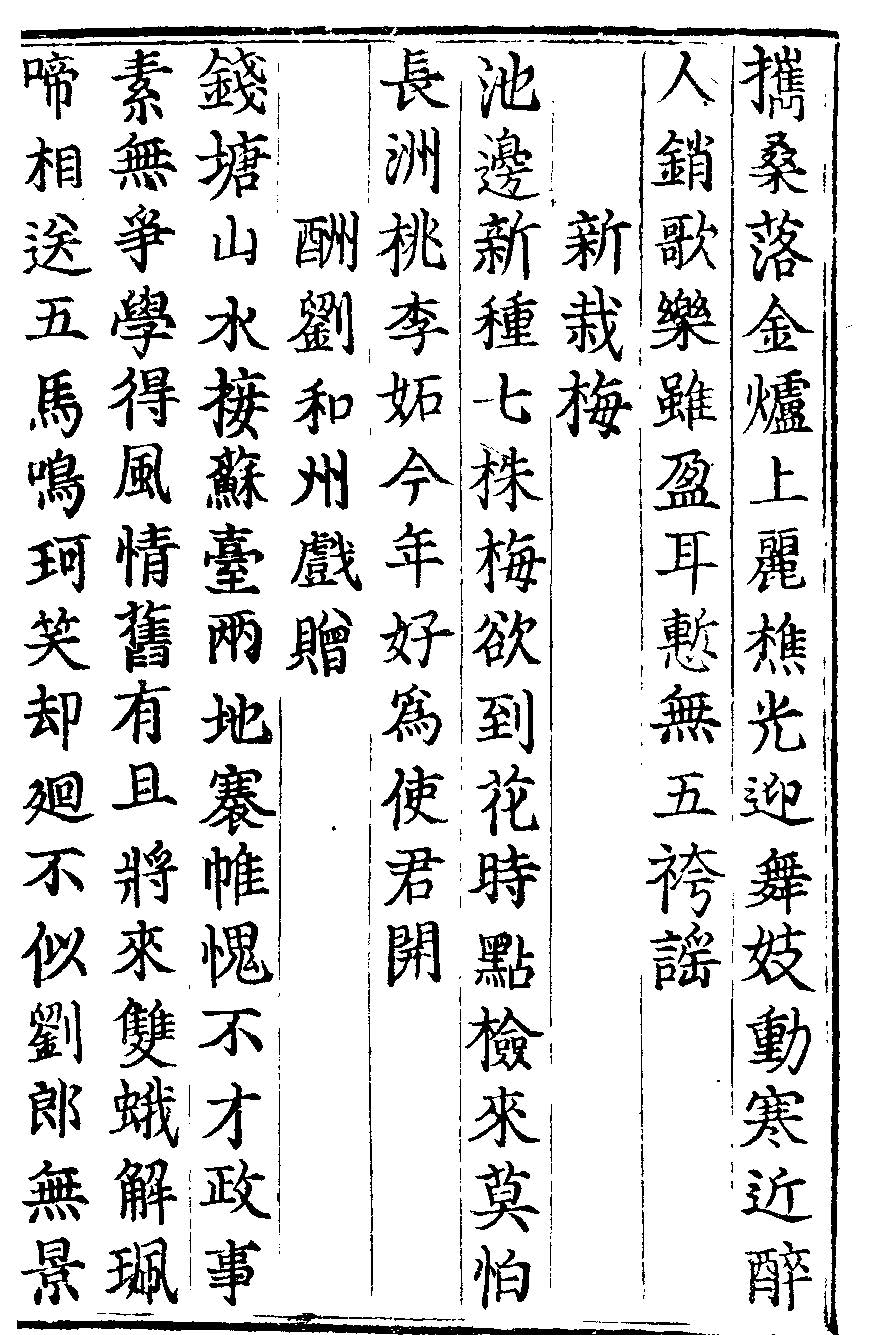 攜桑落金爐上麗樵光迎舞妓動寒近醉
人銷歌樂雖盈耳慙無五袴謡
新栽梅
池邊新種七株梅欲到花時點檢來莫怕
長洲桃李妬今年好爲使君開
酬劉和州戲贈
錢塘山水接蘇臺兩地褰帷愧不才政事
素無爭學得風情舊有且將來雙蛾解珮
啼相送五馬鳴珂笑却廻不似劉郎無景